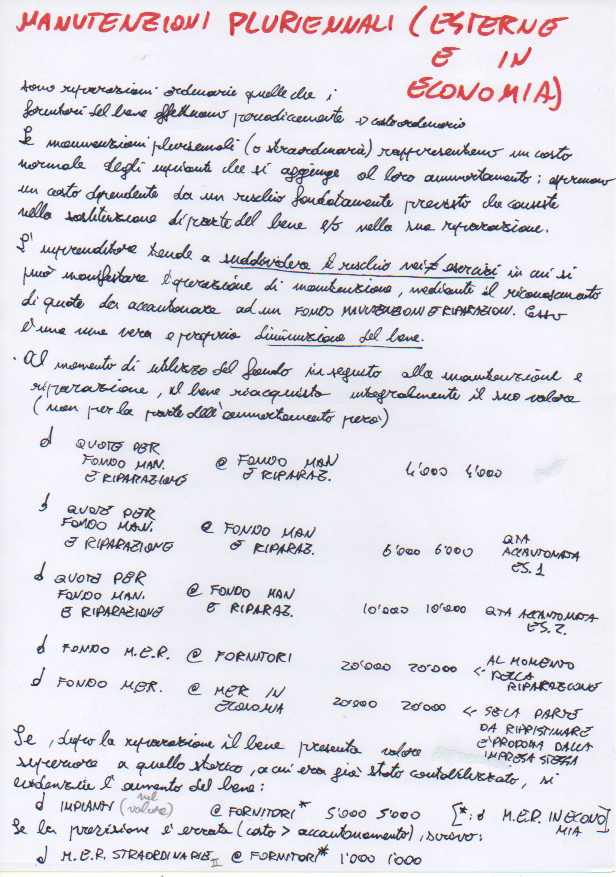 MANUTENZIONI PLURIENNALI (ESTERNE
E IN
ECONOMIA)
sono riparazioni ordinarie quelle che i
fornitori del bene effettuano periodicamente → costo ordinario
Le manutenzioni pluriennali (o straordinarie) rappresentano un costo
normale degli impianti che si aggiunge al loro ammortamento: esprimono
un costo dipendente da un rischio fondatamente previsto che consiste
nella sostituzione di parte del bene e/o nella sua riparazione.
L'imprenditore tende a suddividere il rischio nei ≠ esercizi in cui si
può manifestare l'operazione di manutenzione, mediante il riconoscimento
di quote da accantonare ad un FONDO MANUTENZIONI E RIPARAZIONI. Esso
è una vera e propria diminuzione del bene.
· Al momento di utilizzo del fondo in seguito alla manutenzione e
riparazione, il bene riacquista integralmente il suo valore
(non per la parte dell'ammortamento però)
d QUOTE PER
FONDO MAN. @ FONDO MAN
E RIPARAZIONE E RIPARAZ. 4'000 4'000
d QUOTE PER
FONDO MAN. @ FONDO MAN QTA
E RIPARAZIONE E RIPARAZ. 6'000 6'000 ACCANTONATA
ES. 1
d QUOTE PER
FONDO MAN. @ FONDO MAN
E RIPARAZIONE E RIPARAZ. 10'000 10'000 QTA ACCANTONATA
ES. 2.
d FONDO M.E.R. @ FORNITORI 20'000 20'000 ← AL MOMENTO
DELLA
RIPARAZIONE
d FONDO MER. @ MER IN
ECONOMIA 20'000 20'000 ← SE LA PARTE
DA RIPRISTINARE
È PRODOTTA DALLA
IMPRESA STESSA
Se, dopo la riparazione il bene presenta valore
superiore a quello storico, a cui era già stato contabilizzato, si
evidenzia l'aumento del bene:
d IMPIANTI (nel valore) @ FORNITORI* 5'000 5'000 [*: d M.E.R. IN ECONO
MIA]
Se la previsione è errata (costo > accantonamento), scrivo:
d M.E.R. STRAORDINARIE @ FORNITORI* 1'000 1'000